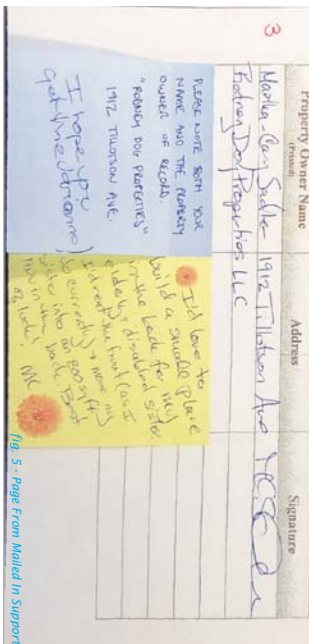 3
Property Owner Name
(Printed)
Address
Signature
Martha-Cary Sadler 1912 Tillotson Ave
Rodney Dog Properties LLC
PLEASE NOTE BOTH YOUR
NAME AND THE PROPERTY
OWNER OF RECORD.
"RODNEY DOG PROPERTIES"
1912 TILLOTSON AVE.
I hope you
get this Adrianne,
I'd love to
build a small place
in the back for my
elderly, disabled sister.
I'd rent the front (as I
do currently) & move my
sister into an 800 sq ft
in the back. Best
of luck! MC
fig. 5 - Page From Mailed In Support